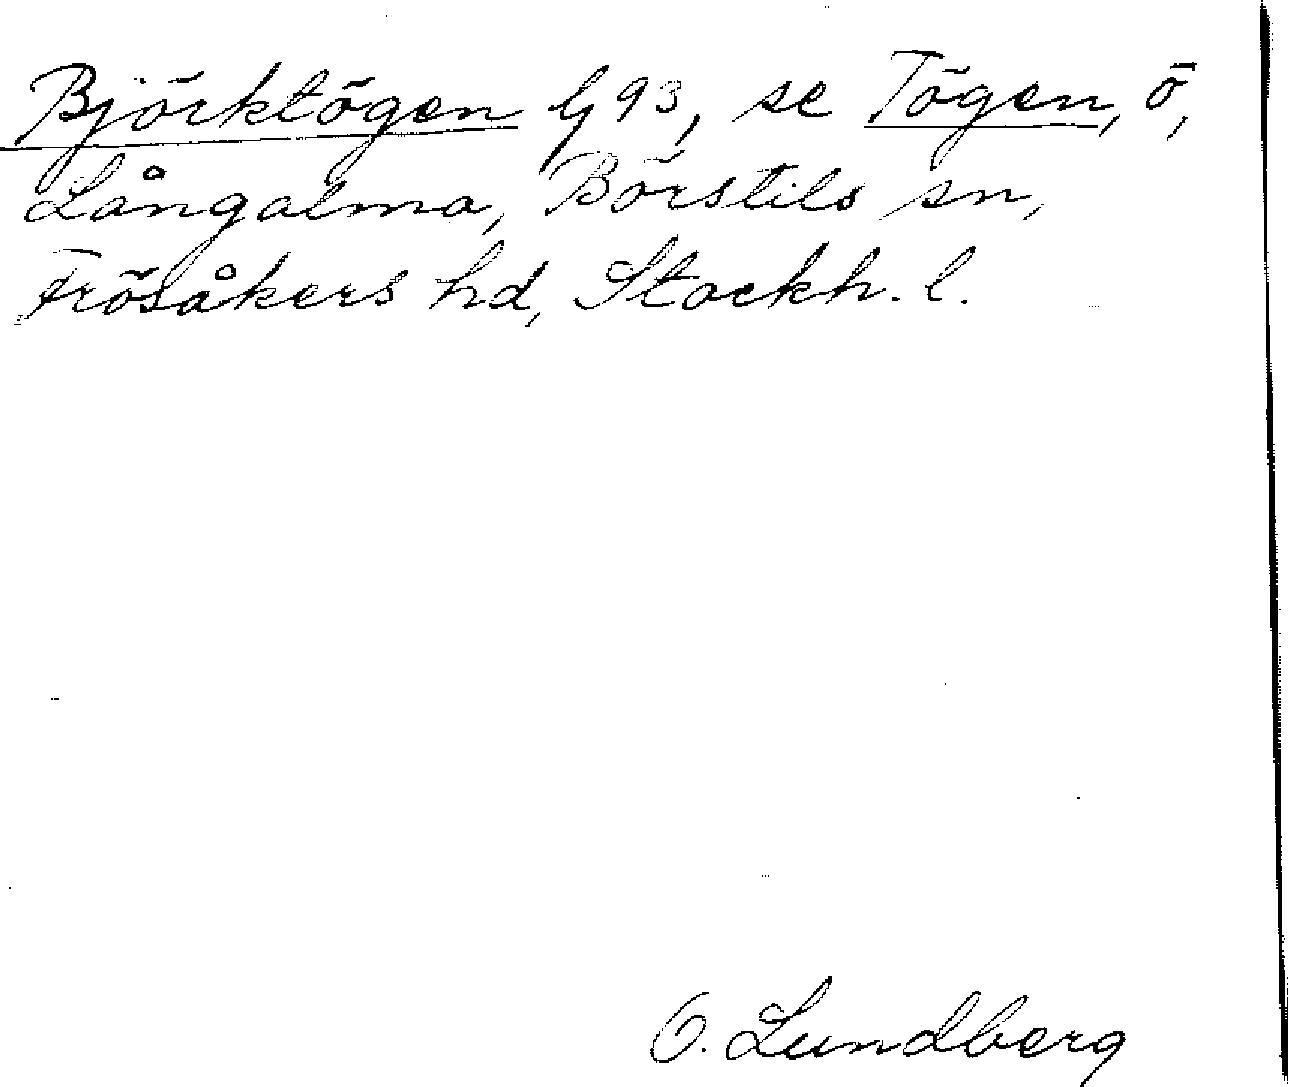 Björktögen G93, se Tögen, ö,
Långalma, Börstils sn,
Frösåkers hd, Stockh. l.
O. Lundberg